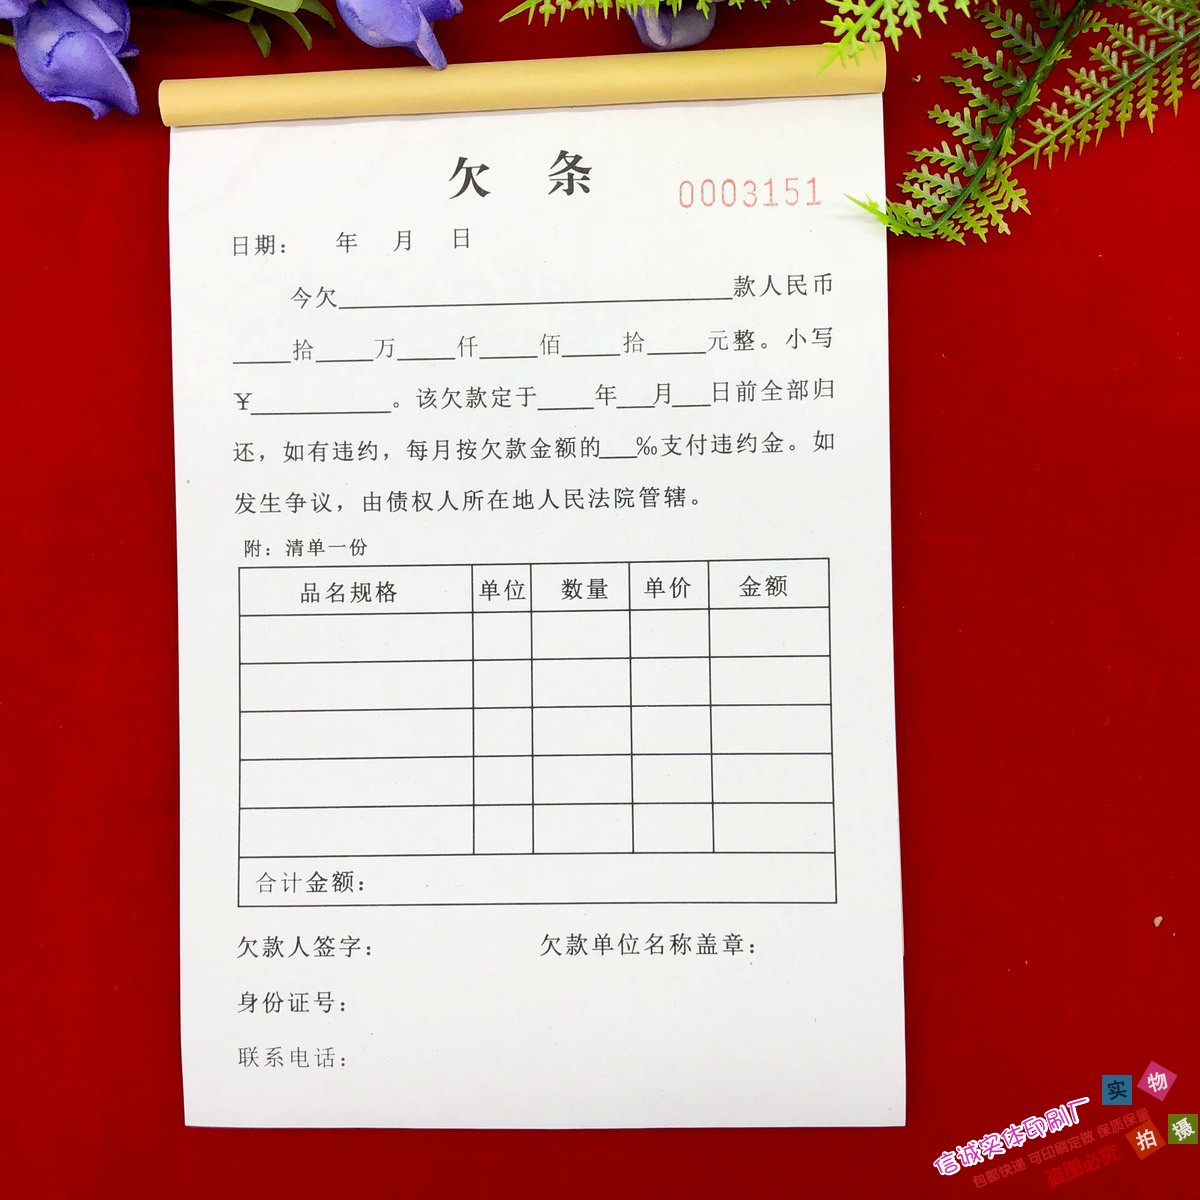 欠 条
0003151
日期： 年 月 日
今欠______________________________款人民币
____拾____万____仟____佰____拾____元整。小写
¥__________。该欠款定于____年___月___日前全部归
还，如有违约，每月按欠款金额的___‰支付违约金。如
发生争议，由债权人所在地人民法院管辖。
附：清单一份
品名规格 单位 数量 单价 金额
合计金额：
欠款人签字： 欠款单位名称盖章：
身份证号：
联系电话：
实物
拍摄
信诚实体印刷厂
包邮快递 可印刷定做 保质保量
盗图必究